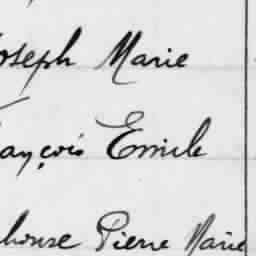 Joseph Marie
François Emile
phonse Pierre Marie